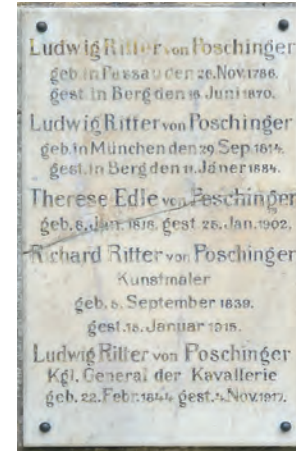 Ludwig Ritter von Poschinger
geb. in Passau den 26. Nov. 1786.
gest. in Berg den 16. Juni 1870.
Ludwig Ritter von Poschinger
geb. in München den 29 Sep. 1814.
gest. in Berg den 11. Jäner 1884.
Therese Edle von Poschinger
geb. 6. Jan. 1818. gest. 28. Jan. 1902.
Richard Ritter von Poschinger
Kunstmaler
geb. 5. September 1839.
gest. 18. Januar 1915.
Ludwig Ritter von Poschinger
Kgl. General der Kavallerie
geb. 22. Febr. 1844 gest. 4. Nov. 1917.